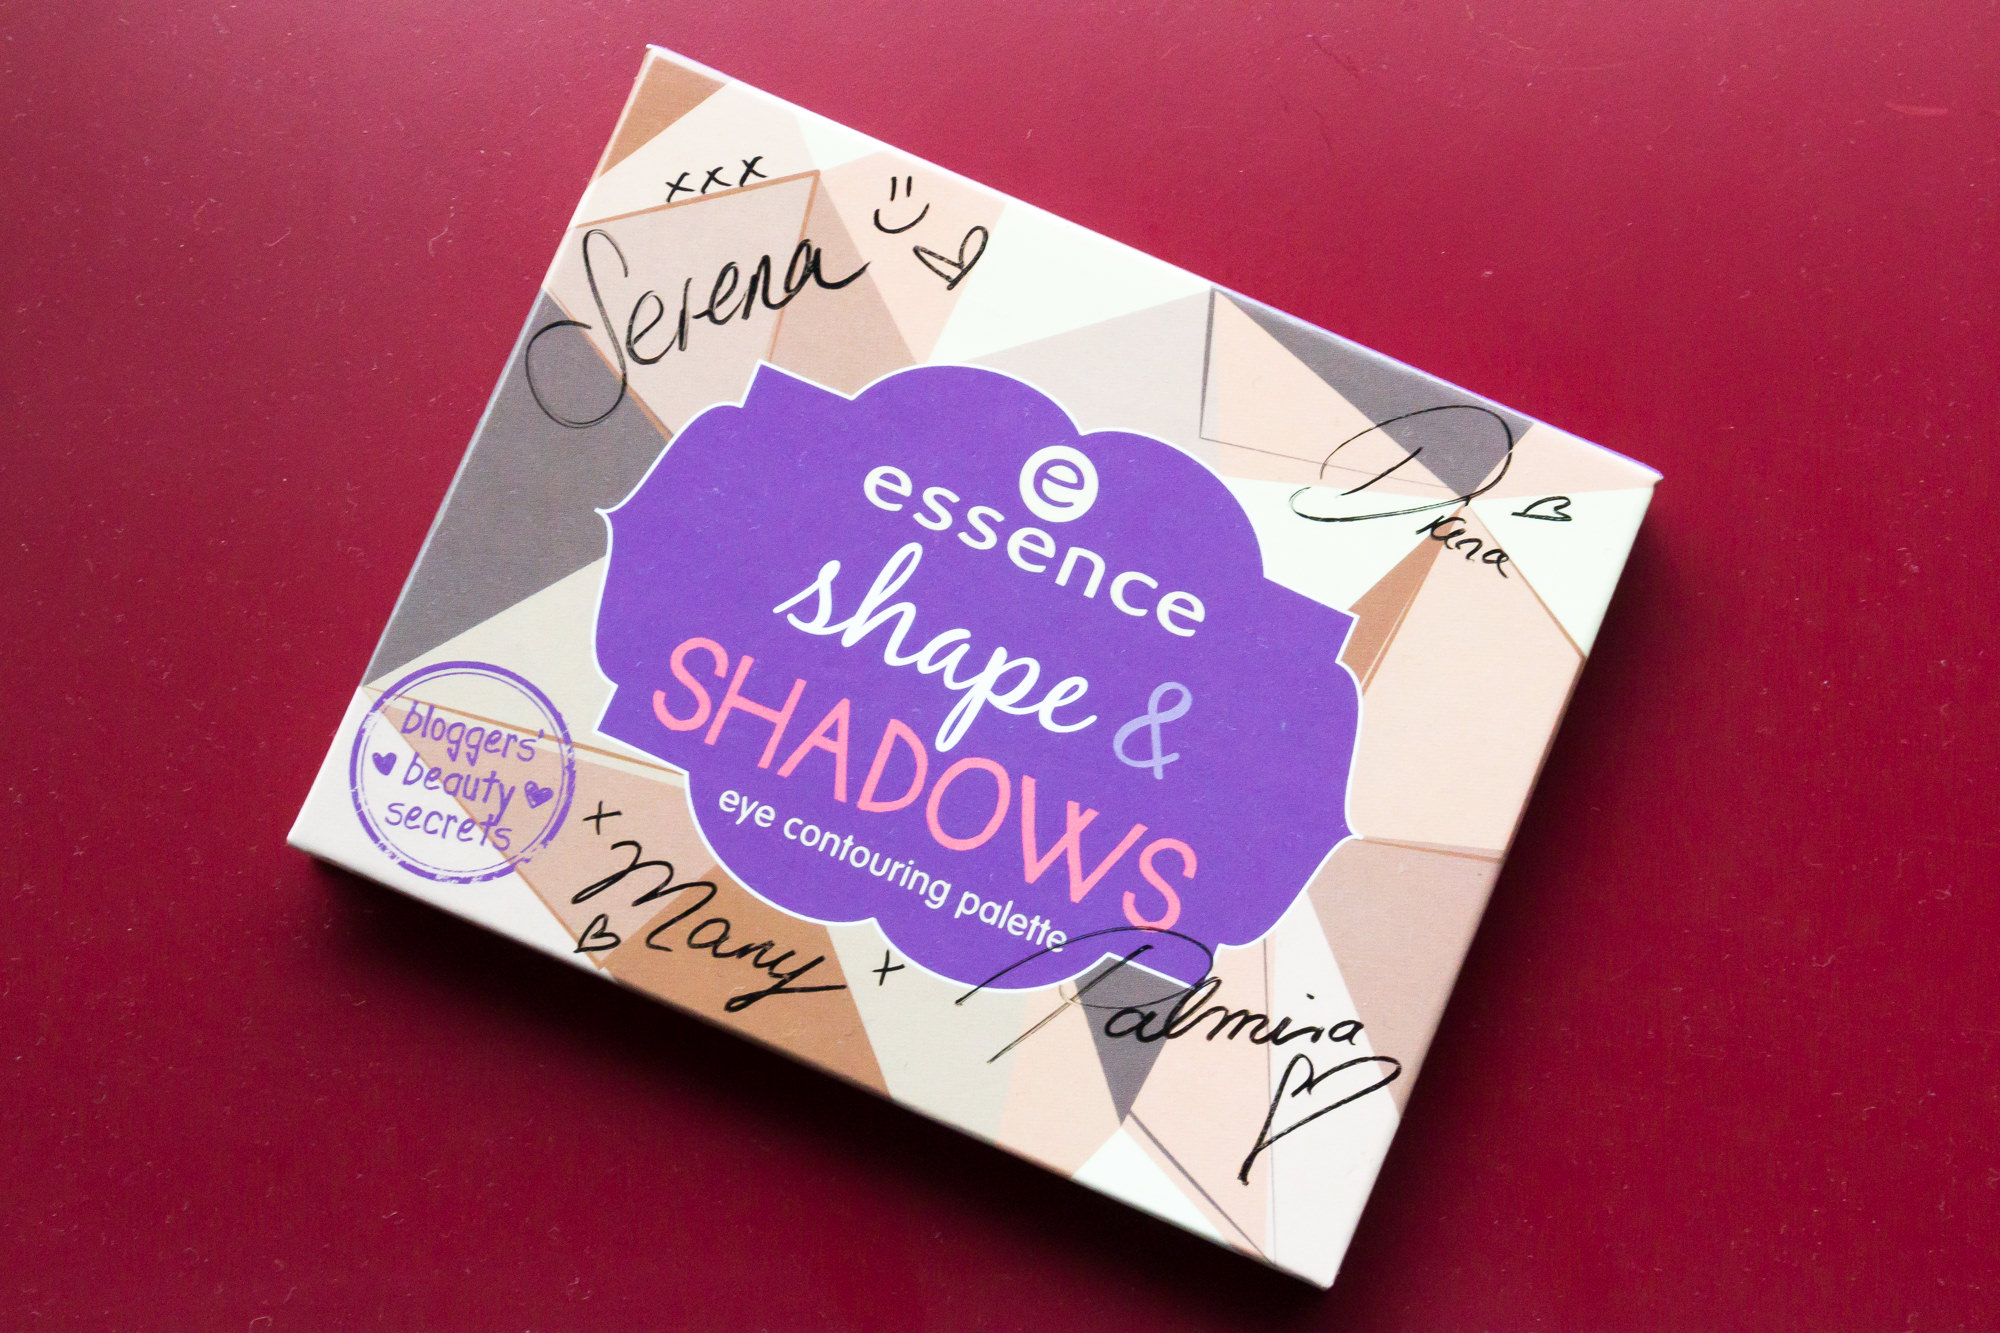 xxx
Serena
Diana
e
essence
shape &
SHADOWS
eye contouring palette
bloggers'
beauty
secrets
x
Many
x
Palmira